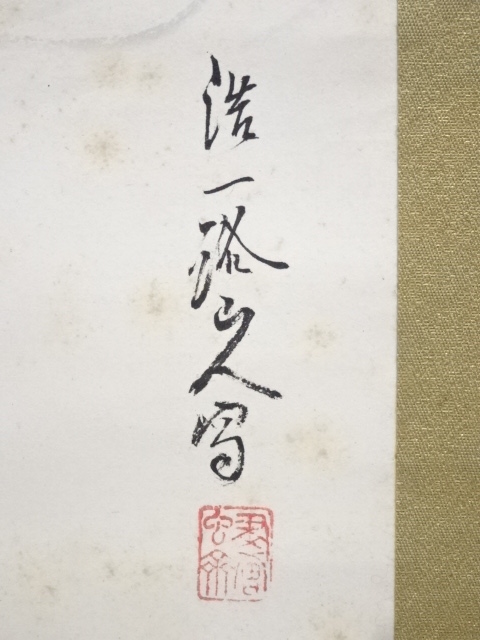 浩一路山人写